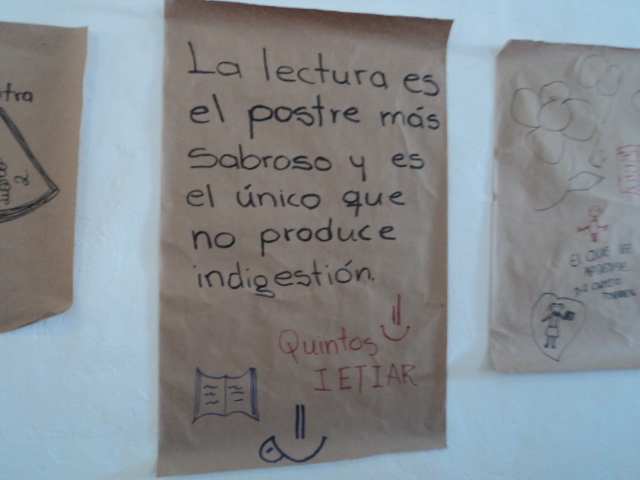 La lectura es
el postre más
sabroso y es
el único que
no produce
indigestión.
Quintos
IETIAR
otra
2
El QUE lee